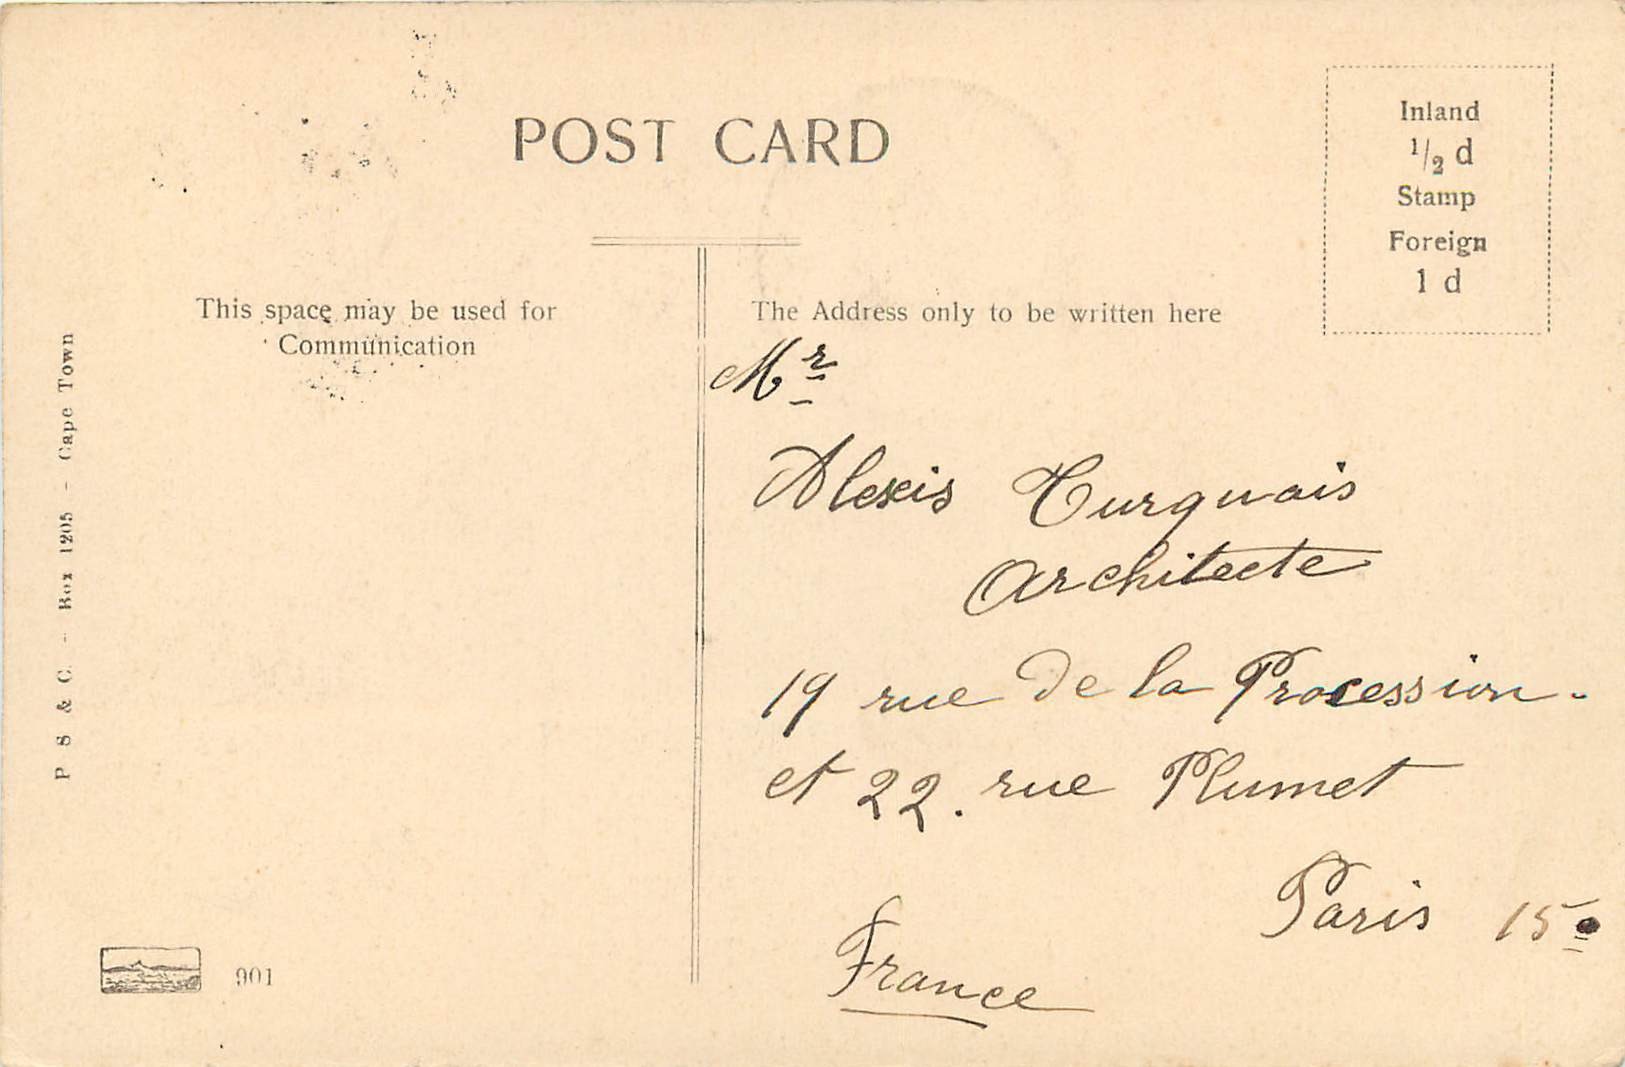 POST CARD
Inland
1/2 d
Stamp
Foreign
1 d
This space may be used for
Communication
The Address only to be written here
P S & C. - Box 1205 - Cape Town
901
Mr
Alexis Turquais
Architecte
19 rue de la Procession.
et 22. rue Plumet
Paris 15e
France